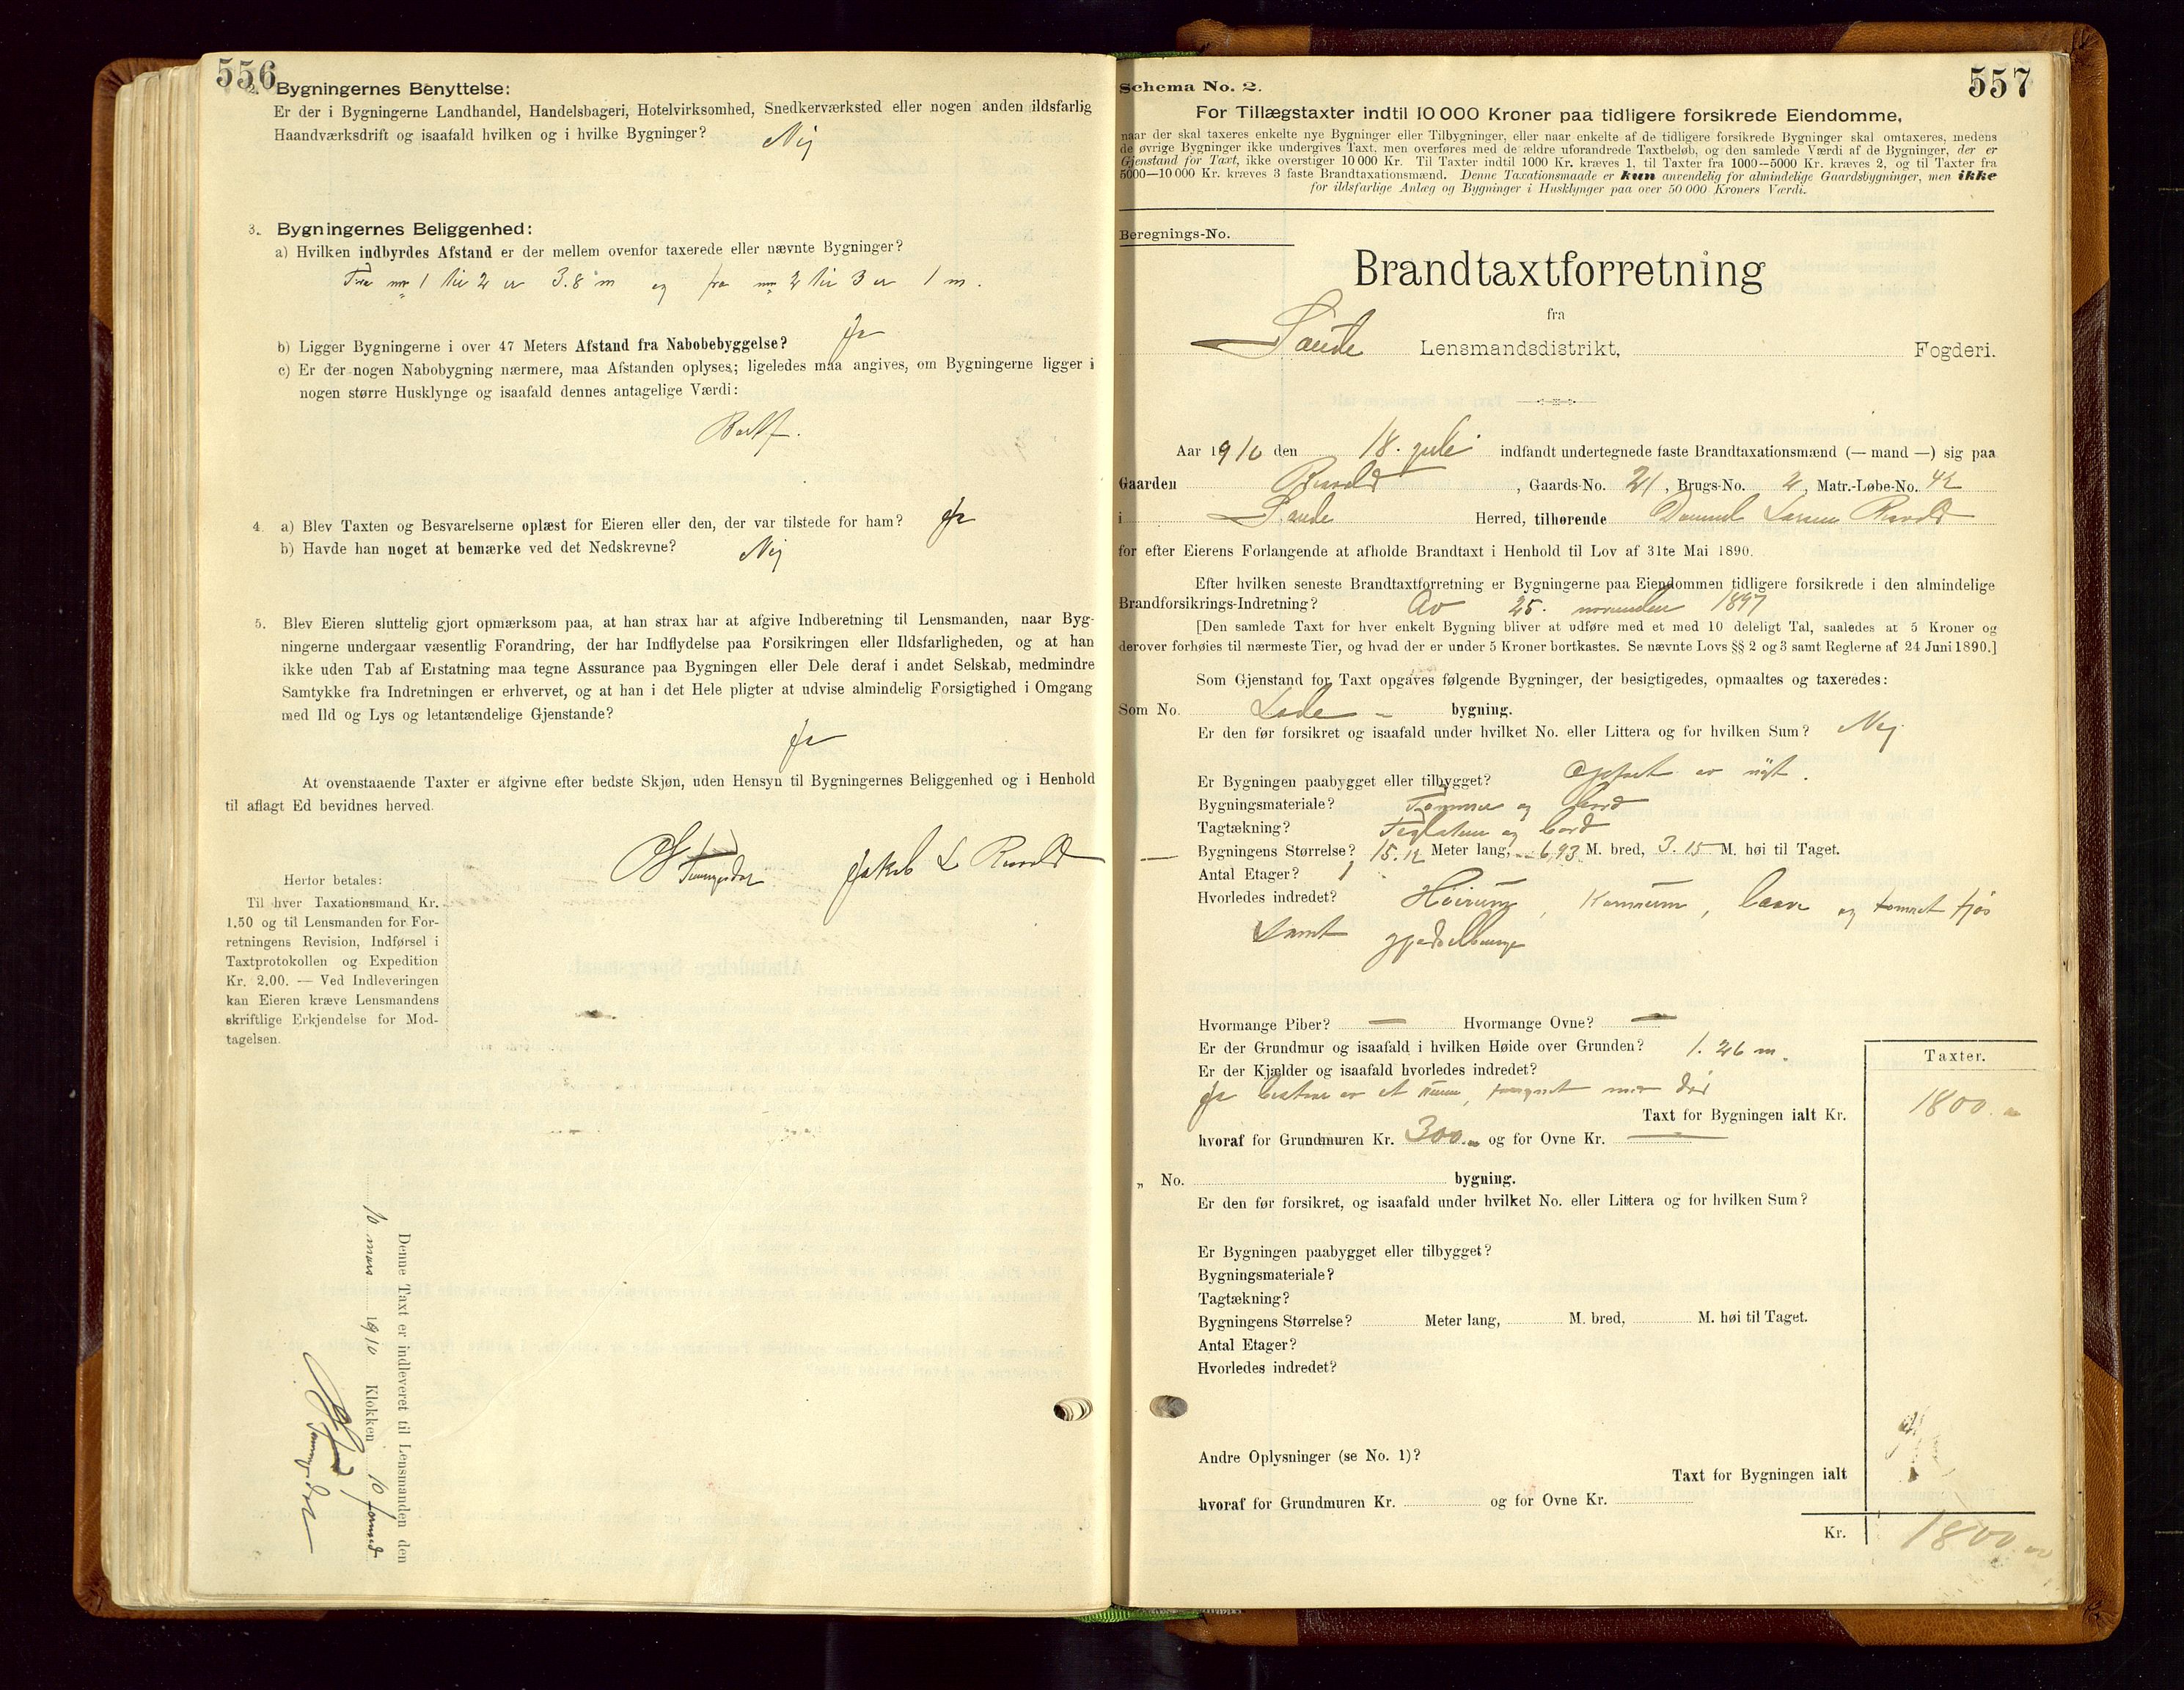 556
2. Bygningernes Benyttelse:
Er der i Bygningerne Landhandel, Handelsbageri, Hotelvirksomhed, Snedkerværksted eller nogen anden ildsfarlig
Haandværksdrift og isaafald hvilken og i hvilke Bygninger? Nej
3. Bygningernes Beliggenhed:
a) Hvilken indbyrdes Afstand er der mellem ovenfor taxerede eller nævnte Bygninger?
Fra nr 1 til 2 er 3.8 m og fra nr 2 til 3 er 1 m.
b) Ligger Bygningerne i over 47 Meters Afstand fra Nabobebyggelse? Ja
c) Er der nogen Nabobygning nærmere, maa Afstanden oplyses; ligeledes maa angives, om Bygningerne ligger i
nogen større Husklynge og isaafald dennes antagelige Værdi:
Bortf.
4. a) Blev Taxten og Besvarelserne oplæst for Eieren eller den, der var tilstede for ham? Ja
b) Havde han noget at bemærke ved det Nedskrevne? Nej
5. Blev Eieren sluttelig gjort opmærksom paa, at han strax har at afgive Indberetning til Lensmanden, naar Byg-
ningerne undergaar væsentlig Forandring, der har Indflydelse paa Forsikringen eller Ildsfarligheden, og at han
ikke uden Tab af Erstatning maa tegne Assurance paa Bygningen eller Dele deraf i andet Selskab, medmindre
Samtykke fra Indretningen er erhvervet, og at han i det Hele pligter at udvise almindelig Forsigtighed i Omgang
med Ild og Lys og letantændelige Gjenstande?
Ja
At ovenstaaende Taxter er afgivne efter bedste Skjøn, uden Hensyn til Bygningernes Beliggenhed og i Henhold
til aflagt Ed bevidnes herved.
Jakob L Ravold
Herfor betales:
Til hver Taxationsmand Kr.
1,50 og til Lensmanden for For-
retningens Revision, Indførsel i
Taxtprotokollen og Expedition
Kr. 2,00. — Ved Indleveringen
kan Eieren kræve Lensmandens
skriftlige Erkjendelse for Mod-
tagelsen.
Denne Taxt er indleveret til Lensmanden den
10 mars 1910 Klokken 10 formd
557
Schema No. 2.
For Tillægstaxter indtil 10 000 Kroner paa tidligere forsikrede Eiendomme,
naar der skal taxeres enkelte nye Bygninger eller Tilbygninger, eller naar enkelte af de tidligere forsikrede Bygninger skal omtaxeres, medens
de øvrige Bygninger ikke undergives Taxt, men overføres med de ældre uforandrede Taxtbeløb, og den samlede Værdi af de Bygninger, der er
Gjenstand for Taxt, ikke overstiger 10 000 Kr. Til Taxter indtil 1000 Kr. kræves 1, til Taxter fra 1000—5000 Kr. kræves 2, og til Taxter fra
5000—10 000 Kr. kræves 3 faste Brandtaxationsmænd. Denne Taxationsmaade er kun anvendelig for almindelige Gaardsbygninger, men ikke
for ildsfarlige Anlæg og Bygninger i Husklynger paa over 50 000 Kroners Værdi.
Beregnings-No.
Brandtaxtforretning
fra
Sande Lensmandsdistrikt, Fogderi.
Aar 1910 den 18. juli indfandt undertegnede faste Brandtaxationsmænd (— mand —) sig paa
Gaarden Ravold, Gaards-No. 21, Brugs-No. 2, Matr.-Løbe-No. 42
i Sande Herred, tilhørende Daniel Larsen Ravold
for efter Eierens Forlangende at afholde Brandtaxt i Henhold til Lov af 31te Mai 1890.
Efter hvilken seneste Brandtaxtforretning er Bygningerne paa Eiendommen tidligere forsikrede i den almindelige
Brandforsikrings-Indretning? Av 25. november 1897
[Den samlede Taxt for hver enkelt Bygning bliver at udføre med et med 10 deleligt Tal, saaledes at 5 Kroner og
derover forhøies til nærmeste Tier, og hvad der er under 5 Kroner bortkastes. Se nævnte Lovs §§ 2 og 3 samt Reglerne af 24 Juni 1890.]
Som Gjenstand for Taxt opgaves følgende Bygninger, der besigtigedes, opmaaltes og taxeredes:
Som No. Lade - bygning.
Er den før forsikret og isaafald under hvilket No. eller Littera og for hvilken Sum? Nej
Er Bygningen paabygget eller tilbygget? Opført av nyt.
Bygningsmateriale? Tømmer og bord
Tagtækning? og bord
Bygningens Størrelse? 15.12 Meter lang, 6,93 M. bred, 3.15 M. høi til Taget.
Antal Etager? 1
Hvorledes indredet? Høirum, Kornrum, laave og tømret fjøs
samt gjødselbinge
Hvormange Piber? — Hvormange Ovne? —
Er der Grundmur og isaafald i hvilken Høide over Grunden? 1.26 m.
Er der Kjælder og isaafald hvorledes indredet?
Ja bestaar av et rum, med dør
Taxter.
Taxt for Bygningen ialt Kr. 1800.
hvoraf for Grundmuren Kr. 300. og for Ovne Kr. —
„ No. bygning.
Er den før forsikret, og isaafald under hvilket No. eller Littera og for hvilken Sum?
Er Bygningen paabygget eller tilbygget?
Bygningsmateriale?
Tagtækning?
Bygningens Størrelse? Meter lang, M. bred, M. høi til Taget.
Antal Etager?
Hvorledes indredet?
Andre Oplysninger (se No. 1)?
Taxt for Bygningen ialt
hvoraf for Grundmuren Kr. og for Ovne Kr.
Kr. 1800.